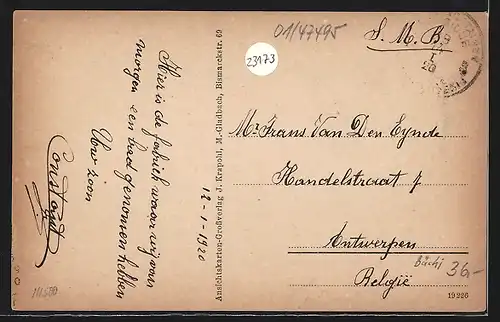 01/47495
S. M. B.
23173
Hier is de fabriek waar wij van
morgen een bad genomen hebben
Uw zoon
Constant
12-1-1920
Ansichtskarten-Großverlag J. Krapohl, M.-Gladbach, Bismarckstr. 69
Mr Frans Van Den Eynde
Handelstraat 7
Antwerpen
België
36.-
19226